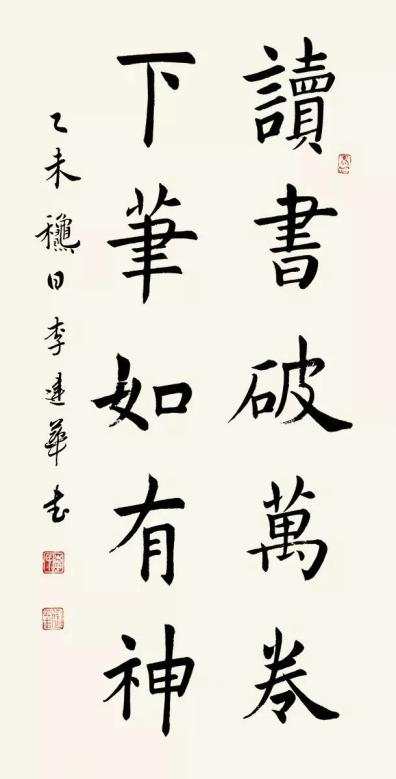 讀書破萬卷
下筆如有神
乙未龝日李建華书